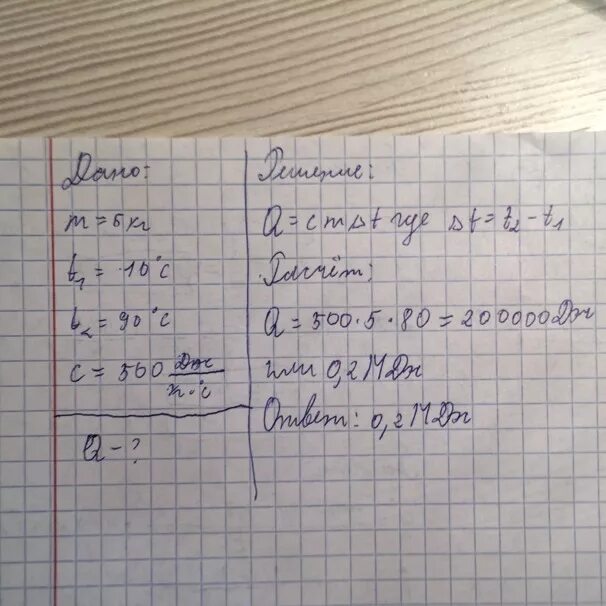 Дано:
m = 5 кг
t₁ = 10°C
t₂ = 90°C
c = 500 Дж/кг·°C
Q - ?
Решение:
Q = c m Δt где Δt = t₂ - t₁
Расчёт:
Q = 500 · 5 · 80 = 200000 Дж
или 0,2 МДж
Ответ: 0,2 МДж